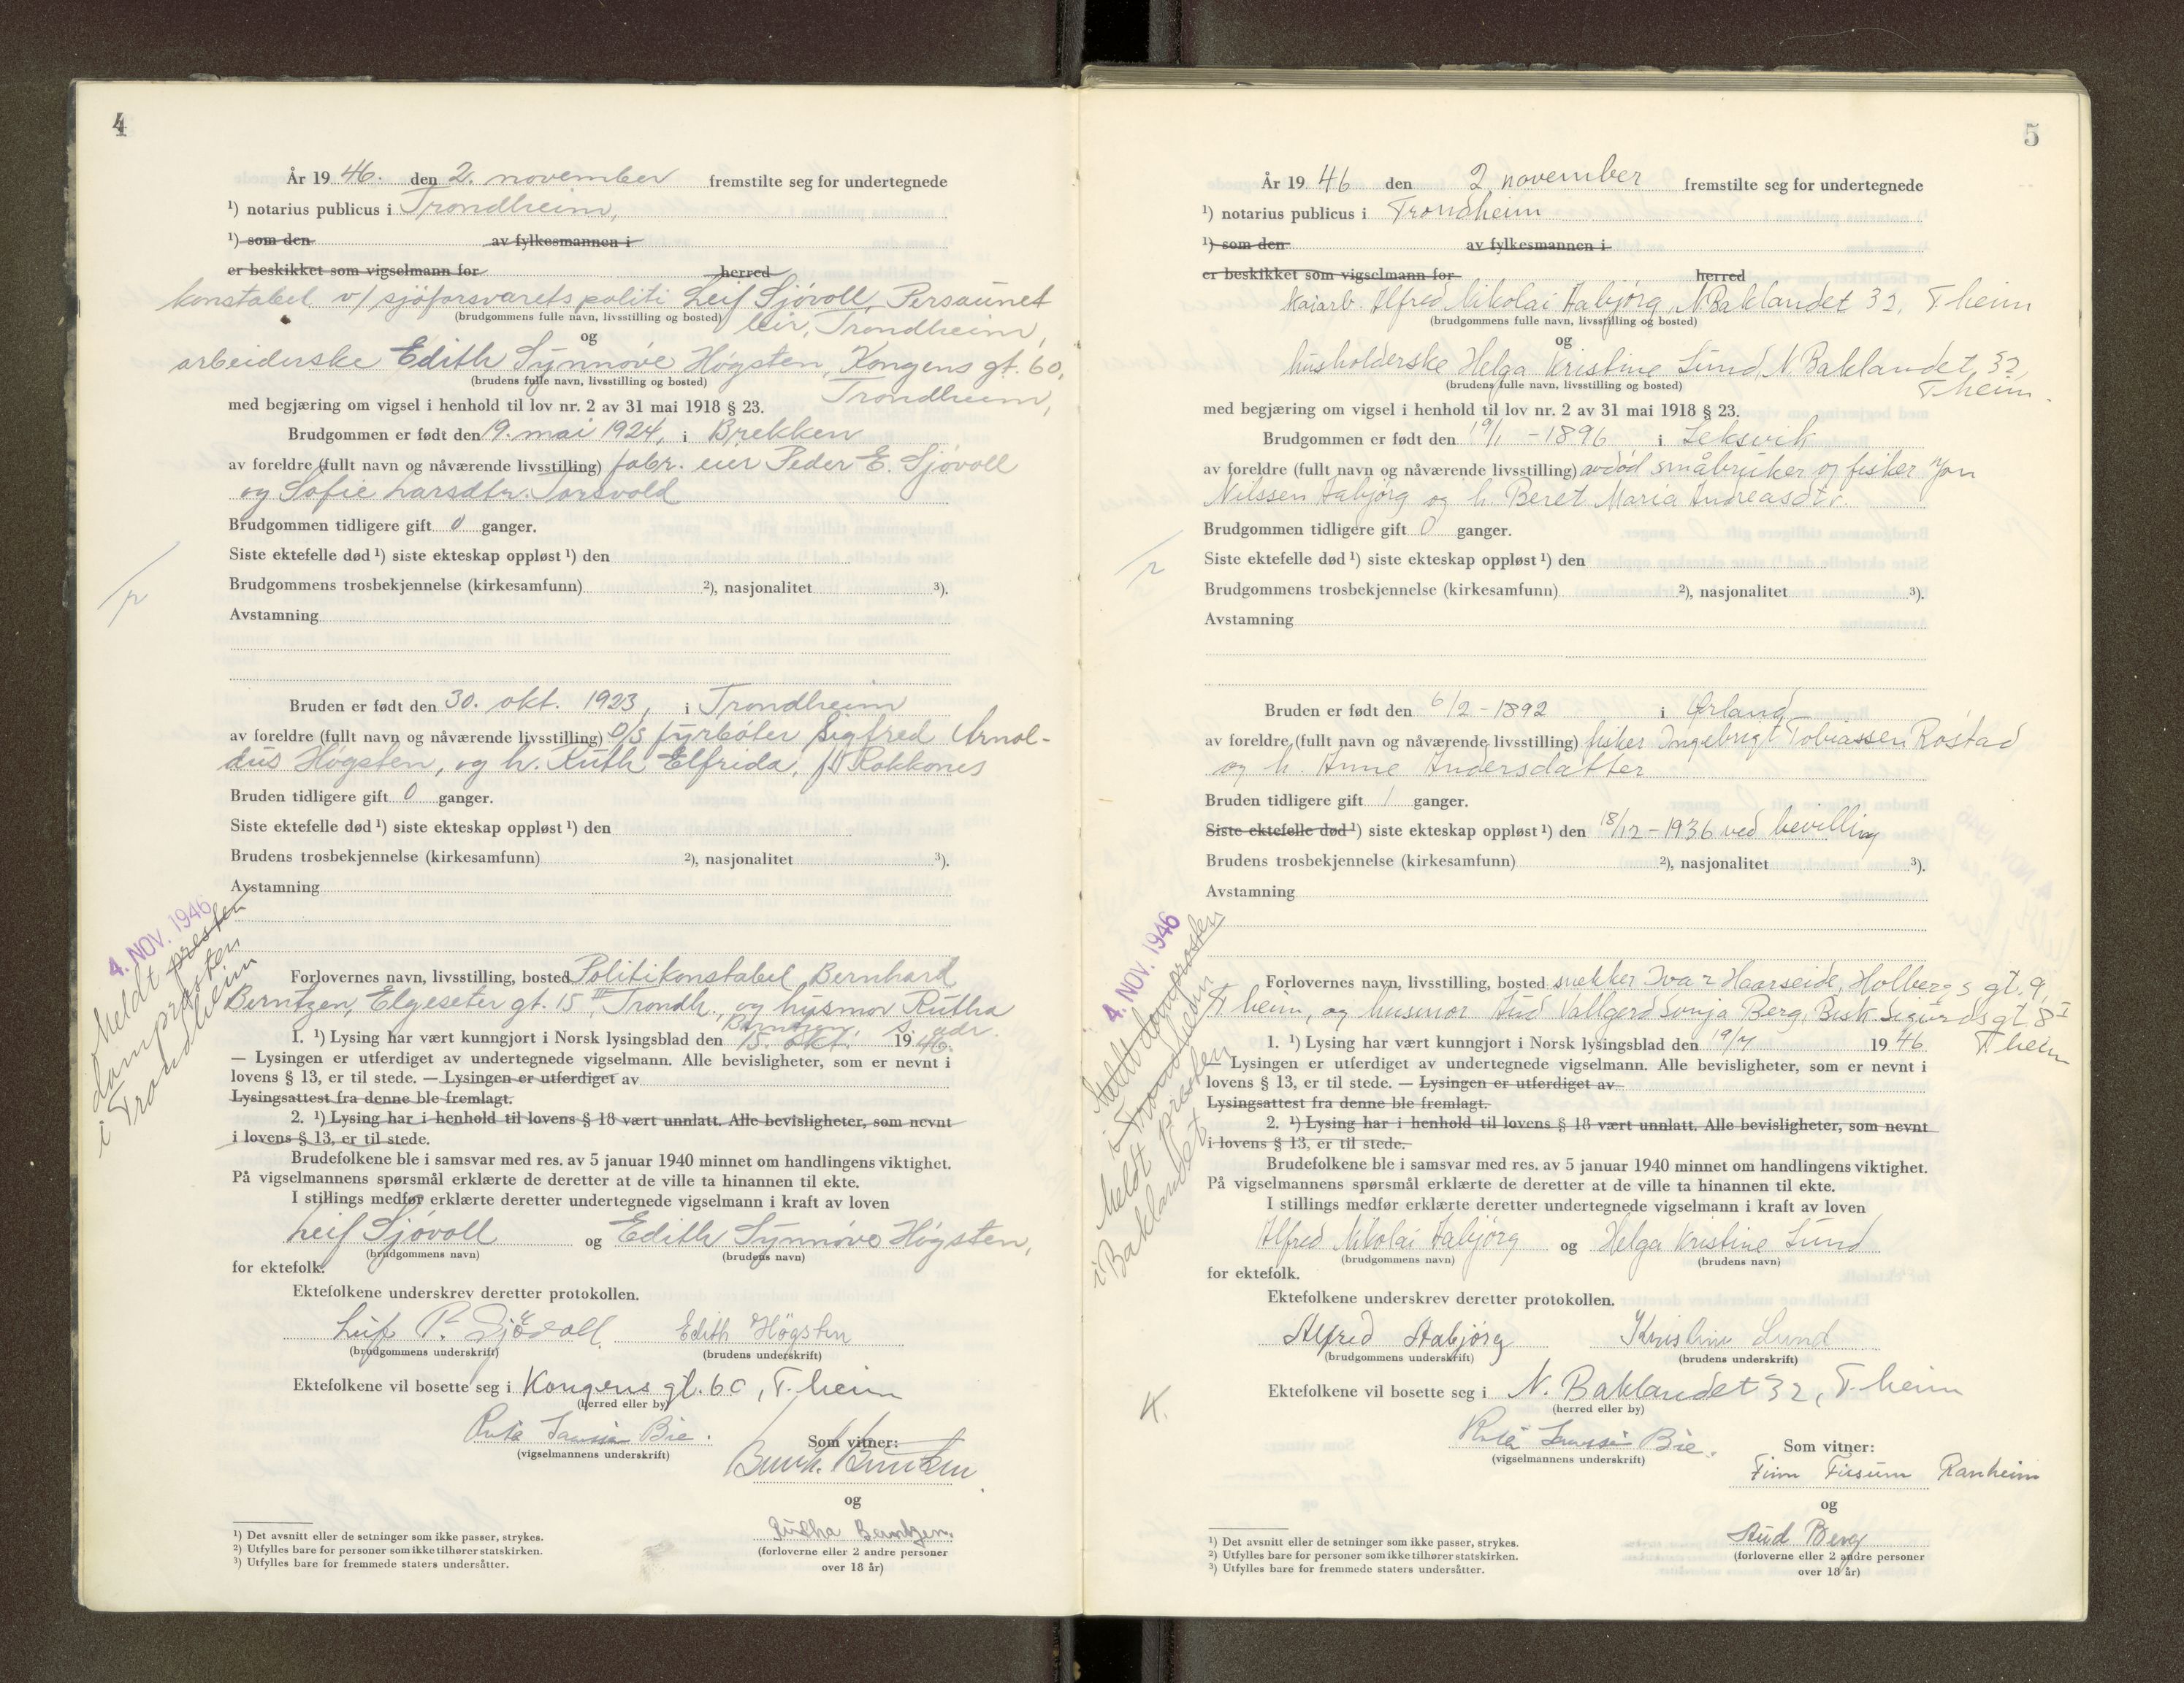 4
År 19 46. den 2. november fremstilte seg for undertegnede
¹) notarius publicus i Trondheim,
¹) som den av fylkesmannen i
er beskikket som vigselmann for herred
konstabel v/ sjøforsvarets politi Leif Sjøvoll, Persaunet
(brudgommens fulle navn, livsstilling og bosted) leir, Trondheim,
og
arbeiderske Edith Synnøve Høgsten, Kongens gt. 60,
(brudens fulle navn, livsstilling og bosted)
med begjæring om vigsel i henhold til lov nr. 2 av 31 mai 1918 § 23. Trondheim,
Brudgommen er født den 19. mai 1924, i Brekken
av foreldre (fullt navn og nåværende livsstilling) fabr. eier Peder E. Sjøvoll
og Sofie Larsdtr. Torsvold
Brudgommen tidligere gift 0 ganger.
Siste ektefelle død ¹) siste ekteskap oppløst ¹) den
Brudgommens trosbekjennelse (kirkesamfunn) ²), nasjonalitet ³).
Avstamning
Bruden er født den 30. okt. 1923, i Trondheim
av foreldre (fullt navn og nåværende livsstilling) D/S fyrbøter Sigfred Arnol-
dus Høgsten, og h. Ruth Elfrida, f. Rokkones
Bruden tidligere gift 0 ganger.
Siste ektefelle død ¹) siste ekteskap oppløst ¹) den
Brudens trosbekjennelse (kirkesamfunn) ²), nasjonalitet ³).
Avstamning
4. NOV. 1946
Meldt presten
domprosten
i Trondheim
Forlovernes navn, livsstilling, bosted Politikonstabel Bernhard
Berntzen, Elgeseter gt. 15 III, Trondh., og husmor Rutha
Berntzen, s. adr.
1. ¹) Lysing har vært kunngjort i Norsk lysingsblad den 15. okt. 19 46.
— Lysingen er utferdiget av undertegnede vigselmann. Alle bevisligheter, som er nevnt i
lovens § 13, er til stede. — Lysingen er utferdiget av
Lysingsattest fra denne ble fremlagt.
2. ¹) Lysing har i henhold til lovens § 18 vært unnlatt. Alle bevisligheter, som nevnt
i lovens § 13, er til stede.
Brudefolkene ble i samsvar med res. av 5 januar 1940 minnet om handlingens viktighet.
På vigselmannens spørsmål erklærte de deretter at de ville ta hinannen til ekte.
I stillings medfør erklærte deretter undertegnede vigselmann i kraft av loven
Leif Sjøvoll og Edith Synnøve Høgsten,
(brudgommens navn) (brudens navn)
for ektefolk.
Ektefolkene underskrev deretter protokollen.
Leif P. Sjøvoll Edith Høgsten
(brudgommens underskrift) (brudens underskrift)
Ektefolkene vil bosette seg i Kongens gt. 60, T.heim
(herred eller by)
Bie.
(vigselmannens underskrift)
Som vitner:
Bernh. Berntzen
og
Rutha Berntzen.
(forloverne eller 2 andre personer
over 18 år)
¹) Det avsnitt eller de setninger som ikke passer, strykes.
²) Utfylles bare for personer som ikke tilhører statskirken.
³) Utfylles bare for fremmede staters undersåtter.
5
År 19 46 den 2 november fremstilte seg for undertegnede
¹) notarius publicus i Trondheim
¹) som den av fylkesmannen i
er beskikket som vigselmann for herred
kaiarb. Alfred Nikolai Aabjørg, N. Baklandet 32, T.heim
(brudgommens fulle navn, livsstilling og bosted)
og
husholderske Helga Kristine Lund, N. Baklandet 32,
(brudens fulle navn, livsstilling og bosted) T.heim.
med begjæring om vigsel i henhold til lov nr. 2 av 31 mai 1918 § 23.
Brudgommen er født den 19/1 - 1896 i Leksvik
av foreldre (fullt navn og nåværende livsstilling) avdød småbruker og fisker Jon
Nilssen Aabjørg og h. Beret Maria Andreasdtr.
Brudgommen tidligere gift 0 ganger.
Siste ektefelle død ¹) siste ekteskap oppløst ¹) den
Brudgommens trosbekjennelse (kirkesamfunn) ²), nasjonalitet ³).
Avstamning
Bruden er født den 6/2 - 1892 i Ørland
av foreldre (fullt navn og nåværende livsstilling) fisker Ingebrigt Tobiassen Røstad
og h. Anne Andersdatter
Bruden tidligere gift 1 ganger.
Siste ektefelle død ¹) siste ekteskap oppløst ¹) den 18/12 - 1936 ved bevilling
Brudens trosbekjennelse (kirkesamfunn) ²), nasjonalitet ³).
Avstamning
4. NOV. 1946
Meldt domprosten
i Trondheim
Meldt presten
i Baklandet
Forlovernes navn, livsstilling, bosted snekker Ivar Haarseide, Holbergs gt. 9,
T.heim, og husmor Aud Valgerd Sonja Berg, Bisk Sigurds gt. 8 I
T.heim
1. ¹) Lysing har vært kunngjort i Norsk lysingsblad den 19/7 19 46
— Lysingen er utferdiget av undertegnede vigselmann. Alle bevisligheter, som er nevnt i
lovens § 13, er til stede. — Lysingen er utferdiget av
Lysingsattest fra denne ble fremlagt.
2. ¹) Lysing har i henhold til lovens § 18 vært unnlatt. Alle bevisligheter, som nevnt
i lovens § 13, er til stede.
Brudefolkene ble i samsvar med res. av 5 januar 1940 minnet om handlingens viktighet.
På vigselmannens spørsmål erklærte de deretter at de ville ta hinannen til ekte.
I stillings medfør erklærte deretter undertegnede vigselmann i kraft av loven
Alfred Nikolai Aabjørg og Helga Kristine Lund
(brudgommens navn) (brudens navn)
for ektefolk.
Ektefolkene underskrev deretter protokollen.
Alfred Aabjørg Kristine Lund
(brudgommens underskrift) (brudens underskrift)
K.
Ektefolkene vil bosette seg i N. Baklandet 32, T.heim
(herred eller by)
Bie.
(vigselmannens underskrift)
Som vitner:
Finn Ranheim
og
Aud Berg
(forloverne eller 2 andre personer
over 18 år)
¹) Det avsnitt eller de setninger som ikke passer, strykes.
²) Utfylles bare for personer som ikke tilhører statskirken.
³) Utfylles bare for fremmede staters undersåtter.